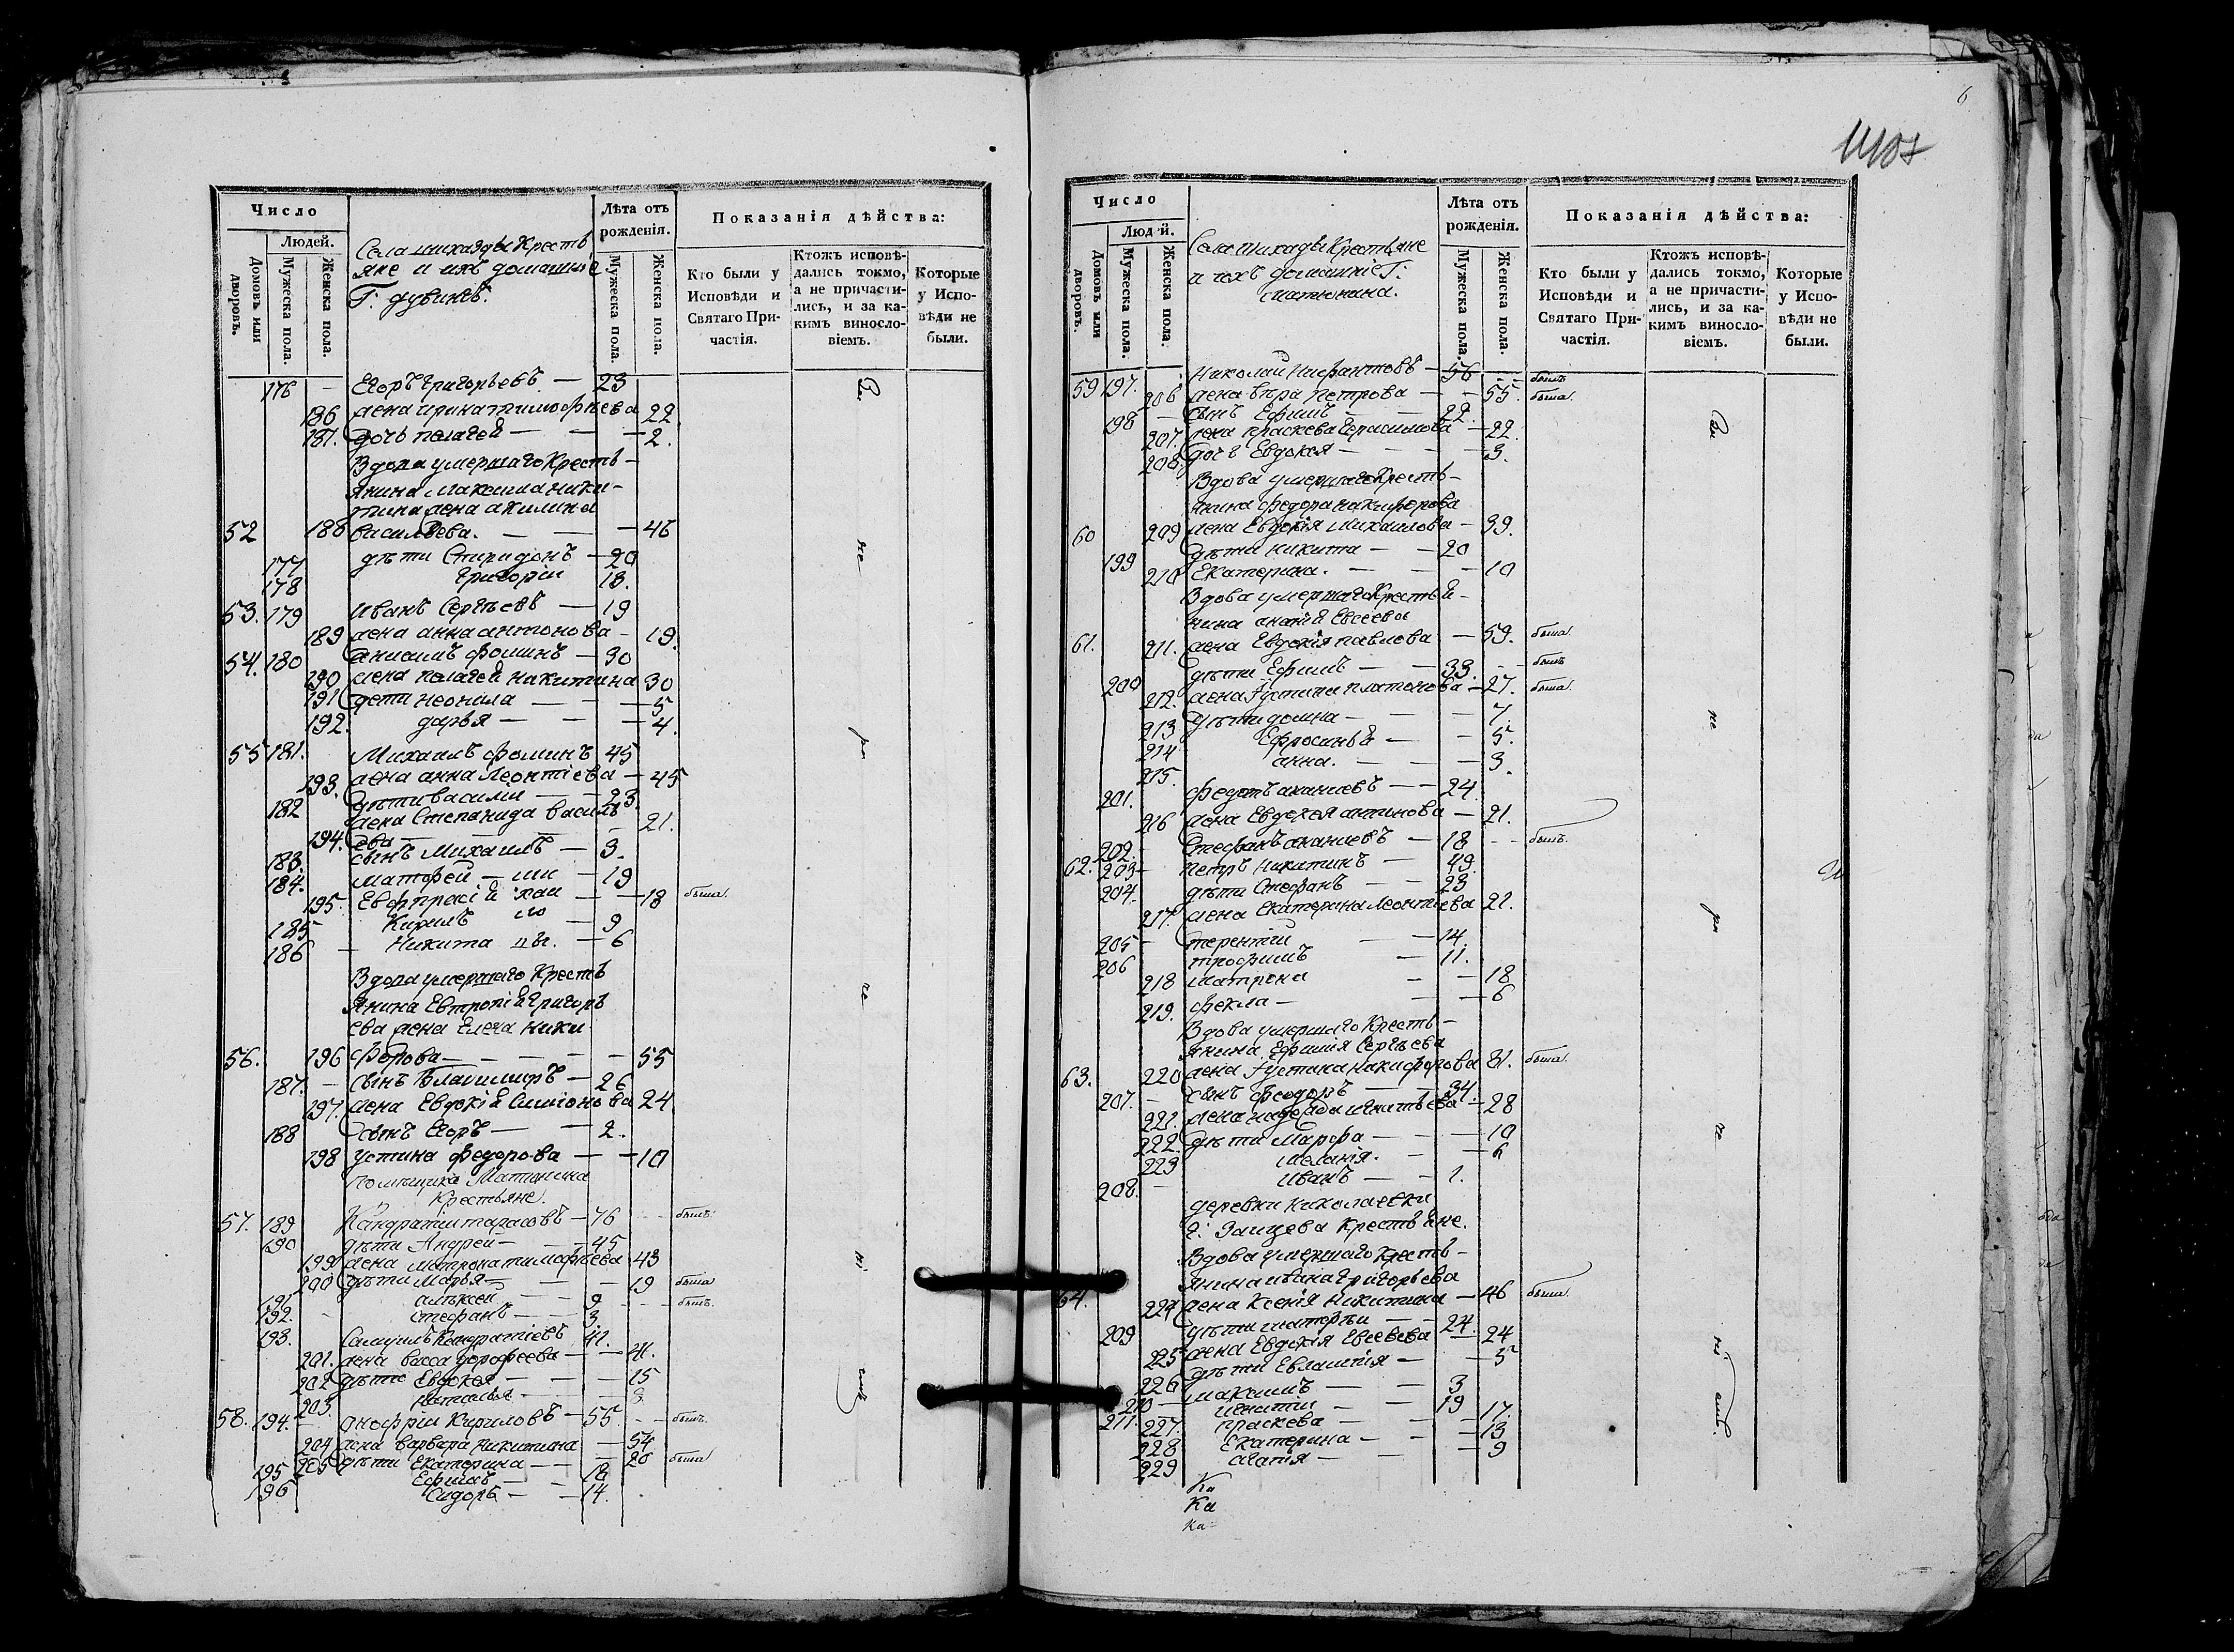 Число
Людей.
Домовъ или дворовъ.
Мужеска пола.
Женска пола.
Села Крестъ
яне и ихъ домашніе
Г:
Лѣта отъ рожденія.
Мужеска пола.
Женска пола.
Показанія дѣйства:
Кто были у Исповѣди и Святаго При-частія.
Ктожъ исповѣ-дались токмо, а не причасти-лись, и за ка-кимъ винословіемъ.
Которые у Испо-вѣди не были.
176 — Егоръ Григорьевъ — 23
186 жена ирина тимофѣева 22
187. дочь пелагея — — 2.
Вдова умершаго Кресть-
янина Максима ники-
тина жена акилина
52 188 васильева. — — 46
177 дѣти Спиридонъ — 20
178 Григоріи 18.
53. 179 Иванъ Сергѣевъ — 19
189 жена анна антонова — 19.
54. 180 анисимъ фоминъ — 30
190 жена пелагея никитина 30
191 дети неонила — — 5
192. дарья — — 4.
55 181. Михаилъ фоминъ 45
193. жена анна Леонтіева — 45
182 дѣти василіи — 23.
жена Степанида василь
194. ева — — 21.
183. сынъ Михаилъ — 3.
184. матфей — 19
195. Евпраксія — 18 была.
185 Кирилъ — 9
186 — Никита — 6
Вдова умершаго Кресть
янина Евтропія Григорь
ева жена Елена ники
56. 196 форова — — — 55
187. — сынъ Владимиръ — 26
197. жена Евдокія Симіонова 24
188 сынъ Егоръ — 2.
198 устина федорова — — 10
Помѣщика Матюнина
Крестьяне.
57. 189 Кандратіи тарасовъ — 76 былъ.
190 дѣти Андрей — 45
199 жена матрона тимофѣева 43
200 дѣти Марья — — 19 была
191 алѣксей — 9 — былъ.
192. стефанъ — 3.
193. Самуилъ Кондратіевъ 41.
201. жена васса дорофеева — 41.
202 дѣти Евдокея — — 15
203. наталья — 8
58. 194. — анофріи Кириловъ — 55. — былъ.
204 жена варвара никитина — 54
205 дѣти Екатерина — — 20 была
195 Ефимъ — 18
196 Сидоръ — 14.
6
Число
Людей.
Домовъ или дворовъ.
Мужеска пола.
Женска пола.
Села Крестьяне
и ихъ домашніе Г:
матюнина.
Лѣта отъ рожденія.
Мужеска пола.
Женска пола.
Показанія дѣйства:
Кто были у Исповѣди и Святаго При-частія.
Ктожъ исповѣ-дались токмо, а не причасти-лись, и за ка-кимъ винословіемъ.
Которые у Испо-вѣди не были.
59 197. Николай Нифантовъ — 56 — былъ
206 жена вѣра Петрова — 55. была.
198 — сынъ Ефимъ — 22.
207. жена праскева Герасимова — 22.
208. дочь Евдокея — — 3.
Вдова умершаго Кресть-
янина федора никифорова
60 209 жена Евдокія Михаилова — 39.
199 дѣти никита — 20
210 Екатерина. — — 10
Вдова умершаго Крестья-
нина ананія Евсеева
61. 211. жена Евдокія павлова — 59. была.
200 дѣти Ефимъ — 33. — былъ
212. жена Устинья платонова — 27. была.
213 дѣти домна — — 7.
214 Ефросинья — — 5.
215. анна. — — 3.
201. федотъ ананіевъ — 24
216 жена Евдокея антипова — 21.
202. — Стефанъ ананіевъ — 18 — былъ.
62. 203 — петръ никитинъ — 49.
204. дѣти Стефанъ — 23
217. жена Екатерина Леонтіева 21.
205 — терентіи — 14.
206 трофимъ — 11.
218 матрена — 18
219. фекла — — 6
Вдова умершаго Кресть-
янина Ефимія Сергѣева
63. 220 жена Устина никифорова 81. была.
207. — сынъ феодоръ — 34.
221. жена надежда игнатьева — 28
222. дѣти Марфа — — 10
223 меланія. — — 6
208. — Иванъ — 1.
деревни николаевки
Г: Заицева Крестьяне.
Вдова умершаго кресть-
янина ивана Григорьева
64. 224 жена Ксенія Никитина — 46 была.
209 дѣти матвѣи — 24.
225 жена Евдокія Евсевева — 24
226 дѣти Евлампія — 5
210 — максимъ — 3
211. игнатіи — 19
227. праскева — 17.
228 Екатерина — — 13
229 агапія — — 9
Ка
Ка
Ка